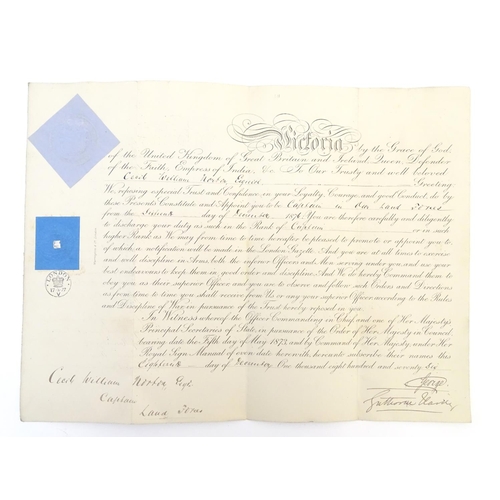 Victoria by the Grace of God,
of the United Kingdom of Great Britain and Ireland Queen, Defender
of the Faith, Empress of India, &c. To Our Trusty and well beloved
Cecil William Norton Esquire Greeting:
We, reposing especial Trust and Confidence in your Loyalty, Courage, and good Conduct, do by
these Presents Constitute and Appoint you to be Captain in Our Land Forces
from the day of 1876. You are therefore carefully and diligently
to discharge your duty as such in the Rank of Captain or in such
higher Rank as We may from time to time hereafter be pleased to promote or appoint you to,
of which a notification will be made in the London Gazette. And you are at all times to exercise
and well discipline in Arms, both the inferior Officers and Men serving under you and use your
best endeavours to keep them in good order and discipline. And We do hereby Command them to
obey you as their superior Officer and you to observe and follow such Orders and Directions
as from time to time you shall receive from Us or any your superior Officer according to the Rules
and Discipline of War, in pursuance of the Trust hereby reposed in you.
In Witness whereof the Officer Commanding in Chief, and one of Her Majesty's
Principal Secretaries of State, in pursuance of the Order of Her Majesty in Council,
bearing date the Fifth day of May 1873, and by Command of Her Majesty, under Her
Royal Sign Manual of even date herewith, hereunto subscribe their names this
day of One thousand eight hundred and seventy six
George
Gathorne Hardy
Cecil William Norton Esqre
Captain
Land Forces